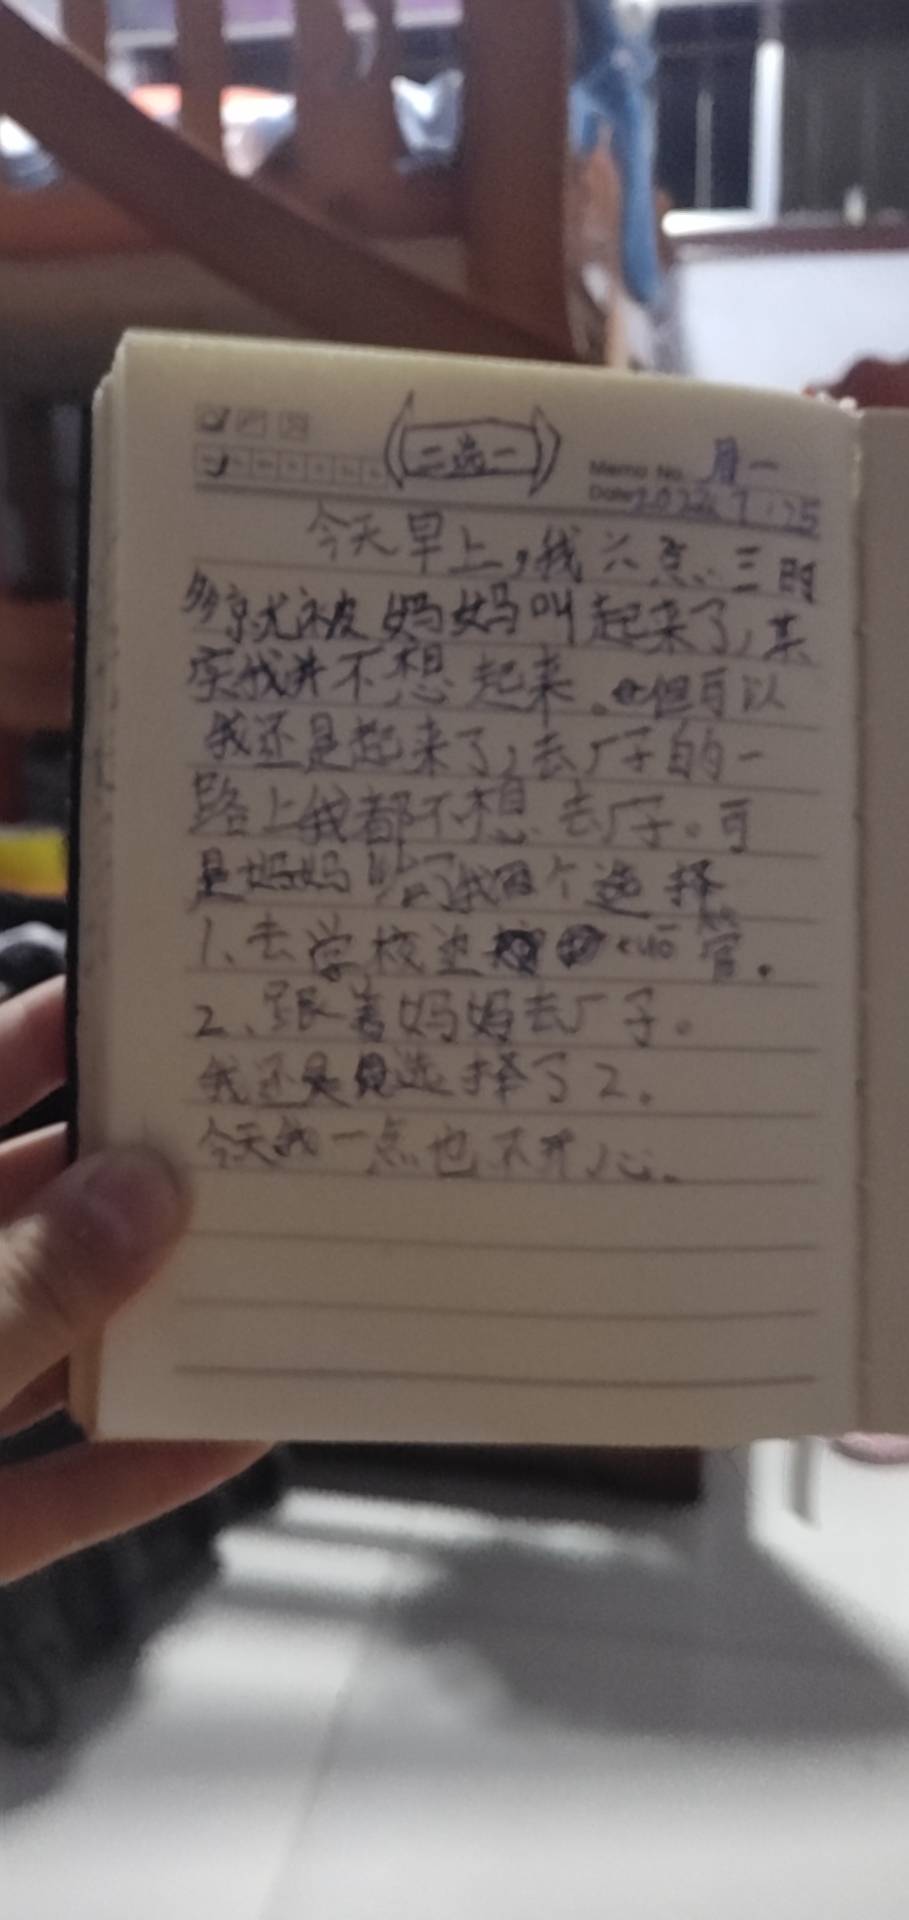 二选一
Memo No. 周一
Date 2022.7.25
今天早上,我六点三时
多就被妈妈叫起来了,其
实我并不想起来。但可以
我还是起来了,去厂子的一
路上我都不想去厂子。可
是妈妈给我两个选择
1、去学校边 tuō 管。
2、跟着妈妈去厂子。
我还是选择了2。
今天我一点也不开心。